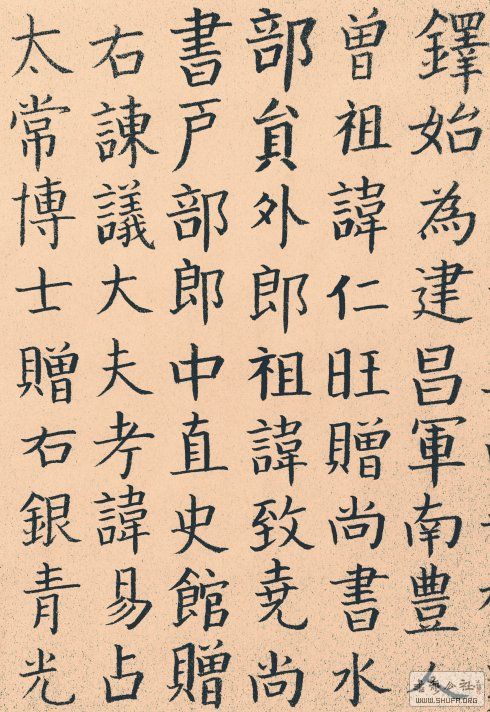 鐸始為建昌軍南豐人
曾祖諱仁旺贈尚書水
部貟外郎祖諱致堯尚
書戸部郎中直史館贈
右諫議大夫考諱易占
太常博士贈右銀青光
WWW.SHUFA.ORG